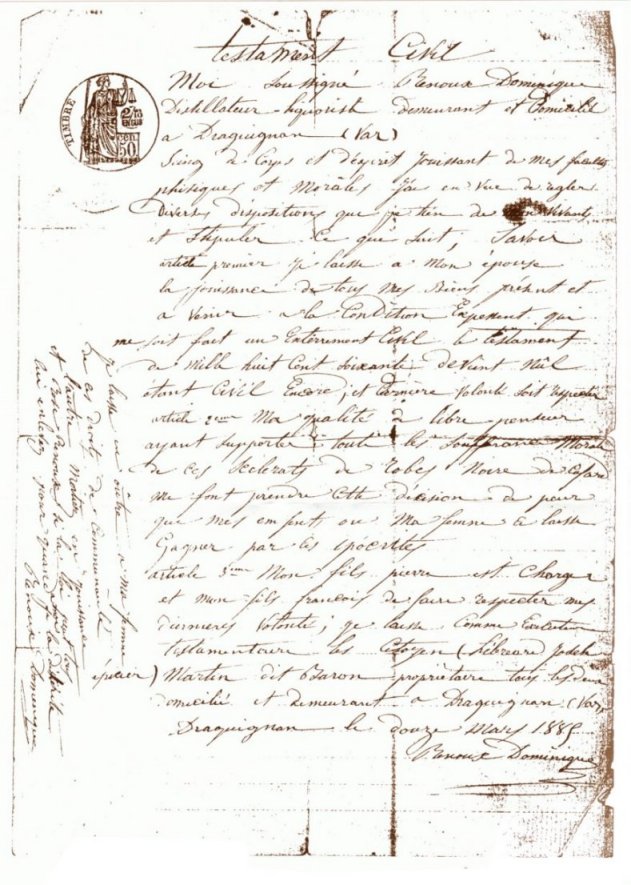 testament Civil
TIMBRE
2/10
EN SUS
50 CEN
Moi Soussigné Renoux Dominique
Distillateur liquoriste demeurant et Domicilié
a Draguignan (Var)
de Corps et d'esprit Jouissant de mes facultés
phisiques et Morâles en vue de règler
Diverses dispositions que je tien de mon vivant
et Stipuler Ce que Suit, Savoir
article premier je laisse a Mon épouse
la jouissance de tous mes Biens présent et
a Venir a la Condition Expressent que
me soit fait un Enterrement Civil le testament
de Mille huit Cent Soixante devient Nul
étant Civil Encore, et Dernière Volonté soit respecter
article 2eme Ma qualité de libre penseur
ayant supporter toute les Souffrance Morale
de ces Scelerats de robes Noire de
me font prendre Cette décision de peur
que mes enfent ou Ma femme ce laisse
Gagner par les ipocrites
article 3eme Mon fils pierre est Charger
et mon fils francois de faire respecter mes
dernieres volonté; je laisse Comme Executeur
testamentaire les Citoyen ( Joseph
épicier) Martin dit Baron propriétaire tous les deux
domicilié et demeurant a Draguignan (Var)
Draguignan le douze Mars 1885
Renoux Dominique
je laisse en outre a ma femme
de ces droits de Communauté
Martin en jouissance
et Rose Renoux de la
Renoux Dominique